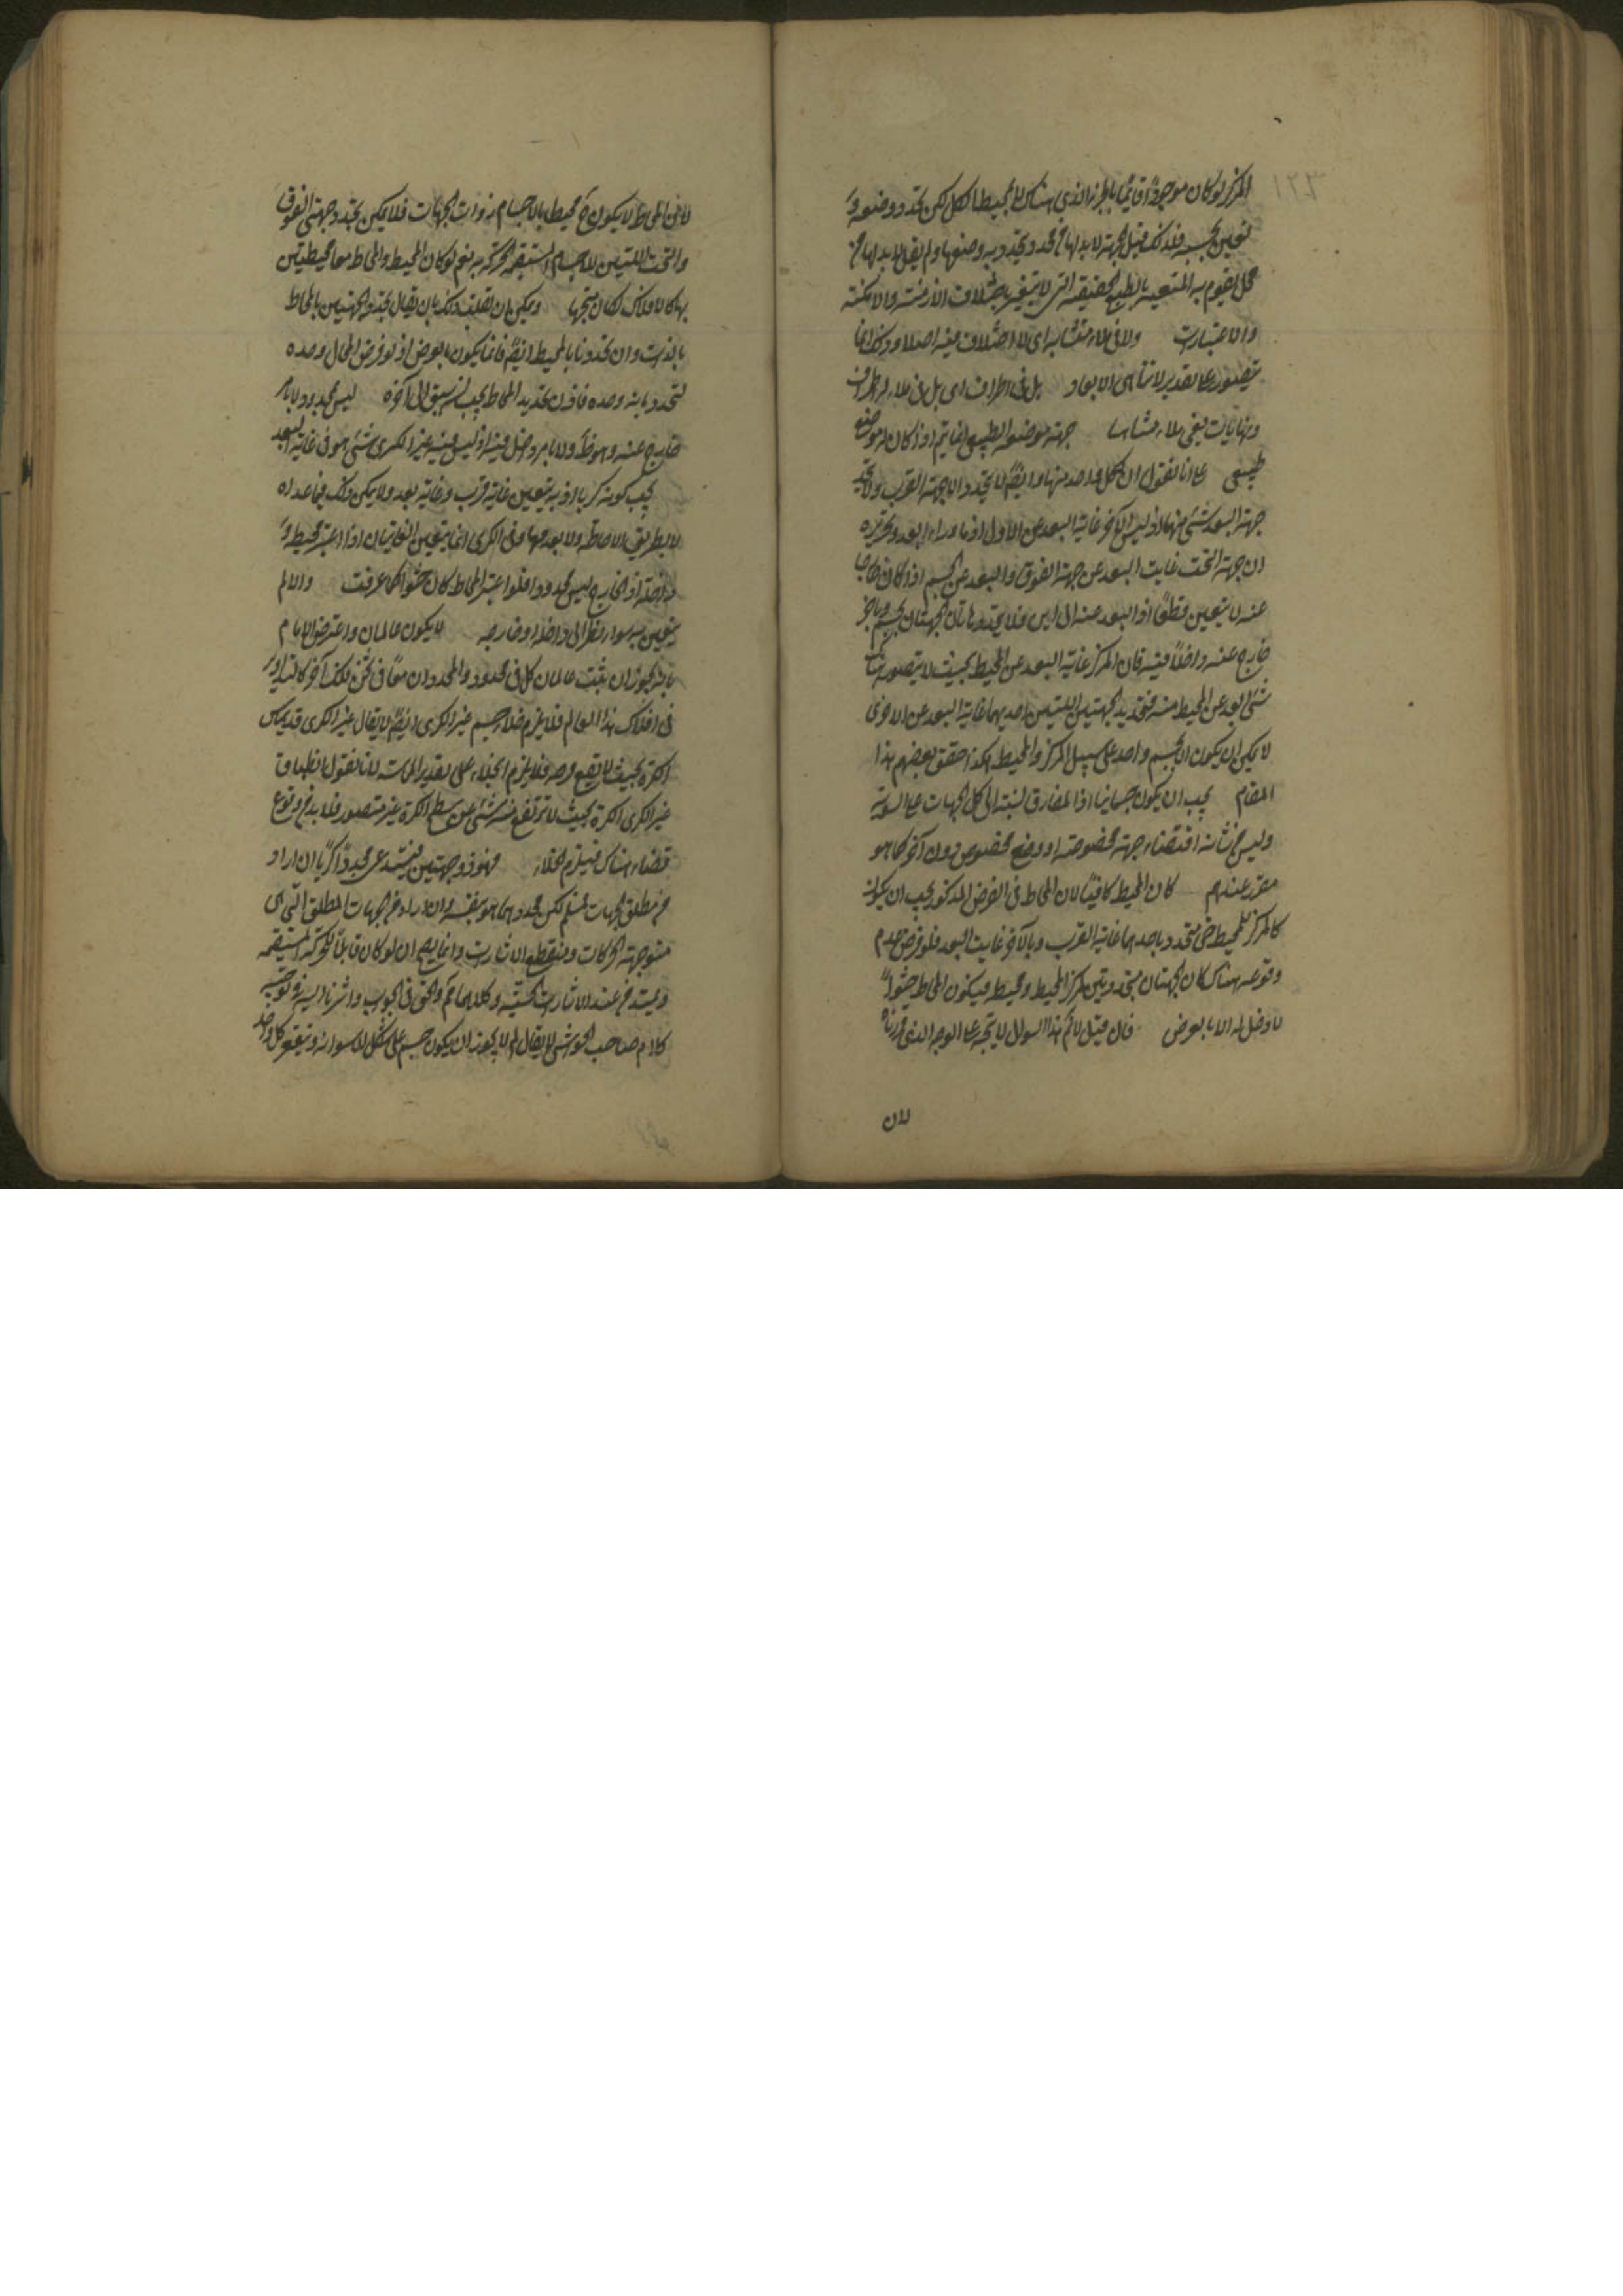 المركز لو كان موجودا قايما بالجزء الذى هناك لا بالمحيط ككل لكن تحدد وضعه و
تعين بحسبه فلذلك قيل الجهة لابد لها من محدد يتحدد به وضعها ولم يقل لابد لها من
محل تقوم به المتعينة بالطبع الحقيقية التى لا يتغير باختلاف الازمنة والامكنة
والاعتبارات ولا فى ملاء متشابه اى لا اختلاف فيه اصلا وذلك انما
يتصور على تقدير لا تناهى الابعاد بل فى اطراف اى بل فى ملاء له اطراف
ونهايات تنفى ملاء متشابها جهة موضعه الطبيعى انما يتم اذا كان له موضع
طبيعى على انا نقول ان لكل واحد منهما وايضا لا يتحدد الا جهة القرب ولا يتحدد
جهة البعد شئ منهما اذ ليس الآخر غاية البعد عن الاول اذ ما وراءه ابعد وتحريره
ان جهة التحت غايت البعد عن جهة الفوق والبعد عن الجسم اذا كان خارجا
عنه لا يتعين قطعا اذ البعد عنه الى اين فلا يتحدد هاتان الجهتان بجسم وباخر
خارج عنه داخلا فيه فان المركز غاية البعد عن المحيط بحيث لا يتصور هناك
شئ ابعد عن المحيط منه فتحديد الجهتين اللتين احديهما غاية البعد عن الاخرى
لا يمكن ان يكون الا بجسم واحد على سبيل المركز والمحيط هكذا حقق بعضهم هذا
المقام يجب ان يكون جسمانيا اذ المفارق نسبته الى كل الجهات على السوية
وليس من شانه اقتضاء جهة مخصوصة او وضع مخصوص دون آخر كما هو
مقرر عندهم كان المحيط كافيا لان المحاط فى الفرض المذكور يجب ان يكون
كالمركز للمحيط حتى يتحدد باحدهما غاية القرب وبالآخر غايت البعد فلو فرض عدم
وقوعه هناك كان الجهتان متحددتين بمركز المحيط ومحيطه فيكون المحاط حشوا
لا دخل له الا بالعرض فان قيل لا ثم هذا السوال لا يتجه على الوجه الذى قررناه
لان
لان المحاط لا يكون ح محيطا بالاجسام ذوات الجهات فلا يمكن تحدد جهتى الفوق
والتحت اللتين للاجسام المستقيمة الحركة به نعم لو كان المحيط والمحاط معا محيطين
بها كالافلاك لكان متجها ويمكن ان تقلب ذلك بان يقال تحدد الجهتين بالمحاط
بالذات وان تحددتا بالمحيط ايضا فانما يكون بالعرض اذ لو فرض المحال وحده
لتحددتا به وحده فاذن تحديد المحاط يجب ان يسبق الى آخره ليس محدود لا بامر
خارج عنه وهو ظ ولا بامر دخل فيه اذ ليس فيه غير الكرى شئ هو فى غاية البعد
يجب كونه كريا اذ به يتعين غاية قرب وغاية بعد ولا يمكن ذلك فيما عداه
لا بطريق الاحاطة ولا بعدمها وفى الكرى انما يتعين الغايتان اذا اعتبر محيط و
داخله اذ الخارج ليس محدودا فلو اعتبر المحاط كان حشوا كما عرفت والا لم
يتعين به سواء نظر الى داخله او خارجه لا يكون عالمان واعترض الامام
بانه يجوز ان يثبت عالمان كل فى محدود والمحددان معا فى ثخن فلك آخر كالتداوير
فى افلاك هذا العالم فلا يلزم خلاء جسم غير الكرى ايضا لا يقال غير الكرى قد يماس
الكرة بحيث لا يقع فرجة فلا يلزم الخلاء على تقدير المماسة لانا نقول انطباق
غير الكرى الكرة بحيث لا ترتفع منه شئ عن سطح الكرة غير متصور فلا بد من وقوع
فضاء هناك فيلزم الخلاء فهو ذو جهتين فيستدعى محددا كريا ان اراد
من مطلق الجهات فمسلم لكن محددهما هو بنفسه وان اراد من الجهات المطلق التى هى
متوجهة الحركات ومنقطع الاشارات وانما يصح ان لو كان قابلا للحركة المستقيمة
ويمتد من عند الاشارات الحسية وكلاهما ثم والحق فى الجواب ما اشرنا اليه فى توجيه
كلام صاحب الحواشى لا يقال لم لا يجوز ان يكون جسم على شكل الاسطوانة ويتقعر كل واحد